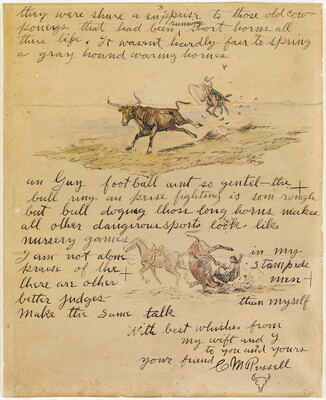 they were shure a supprise to those old cow
poneys that had been running short horns all
there life. It wasent hardly fair to spring
a gray hound waring hornes
an Guy foot ball aint so gentel – the
bull ring an prise fighting is som rough
but bull doging those long horns makes
all other dangirous sports look like
nursery games
I am not alone in my
praise of the Stampede
there are other men
better judges than myself
Make the same talk
With best whishes from
my wife and I
to you and yours
your friend CM Russell